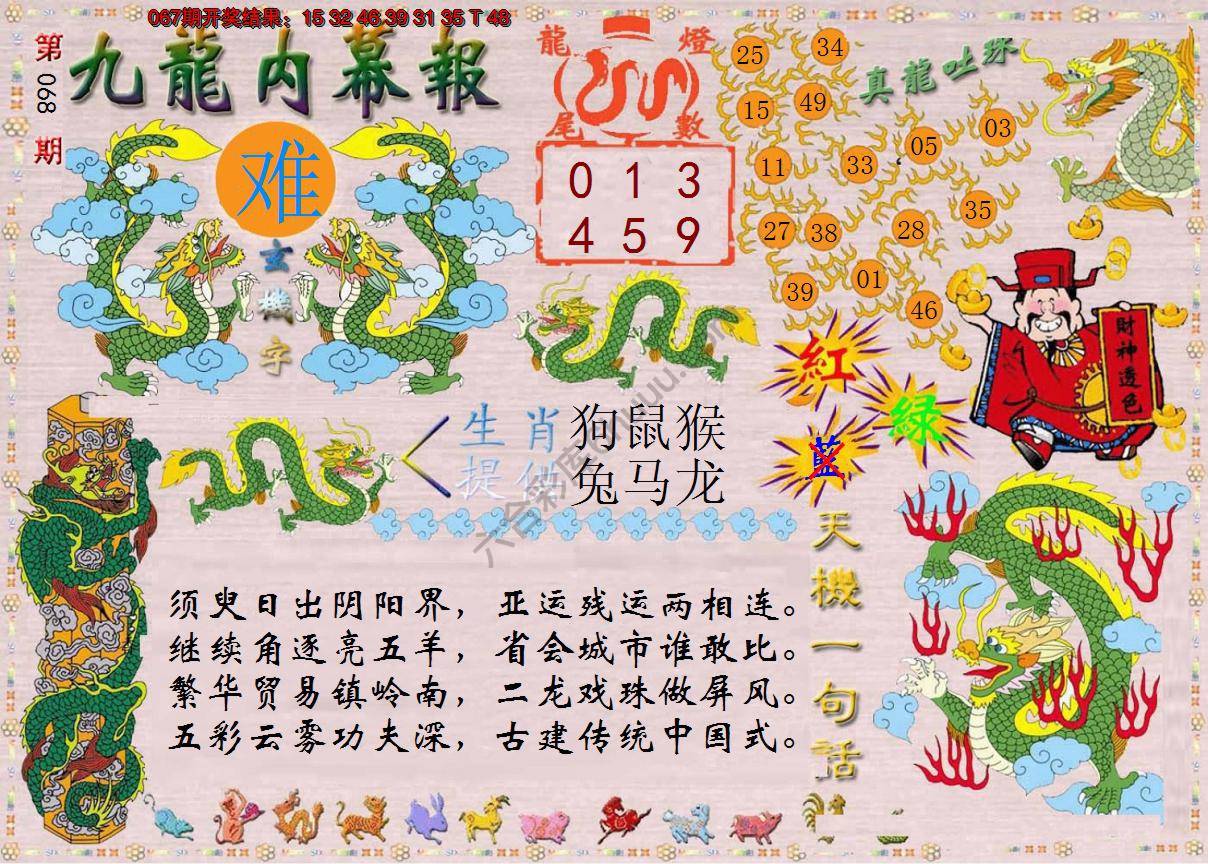 067期开奖结果：15 32 46 39 31 35 T 48
第068期
九龍内幕報
难
玄機字
龍燈
尾數
0 1 3
4 5 9
真龍吐珠
25 34
15 49
11 33 05 03
27 38 28 35
39 01 46
財神透色
紅
綠
藍
生肖
提供
狗鼠猴
兔马龙
天機一句話
须臾日出阴阳界，亚运残运两相连。
继续角逐亮五羊，省会城市谁敢比。
繁华贸易镇岭南，二龙戏珠做屏风。
五彩云雾功夫深，古建传统中国式。